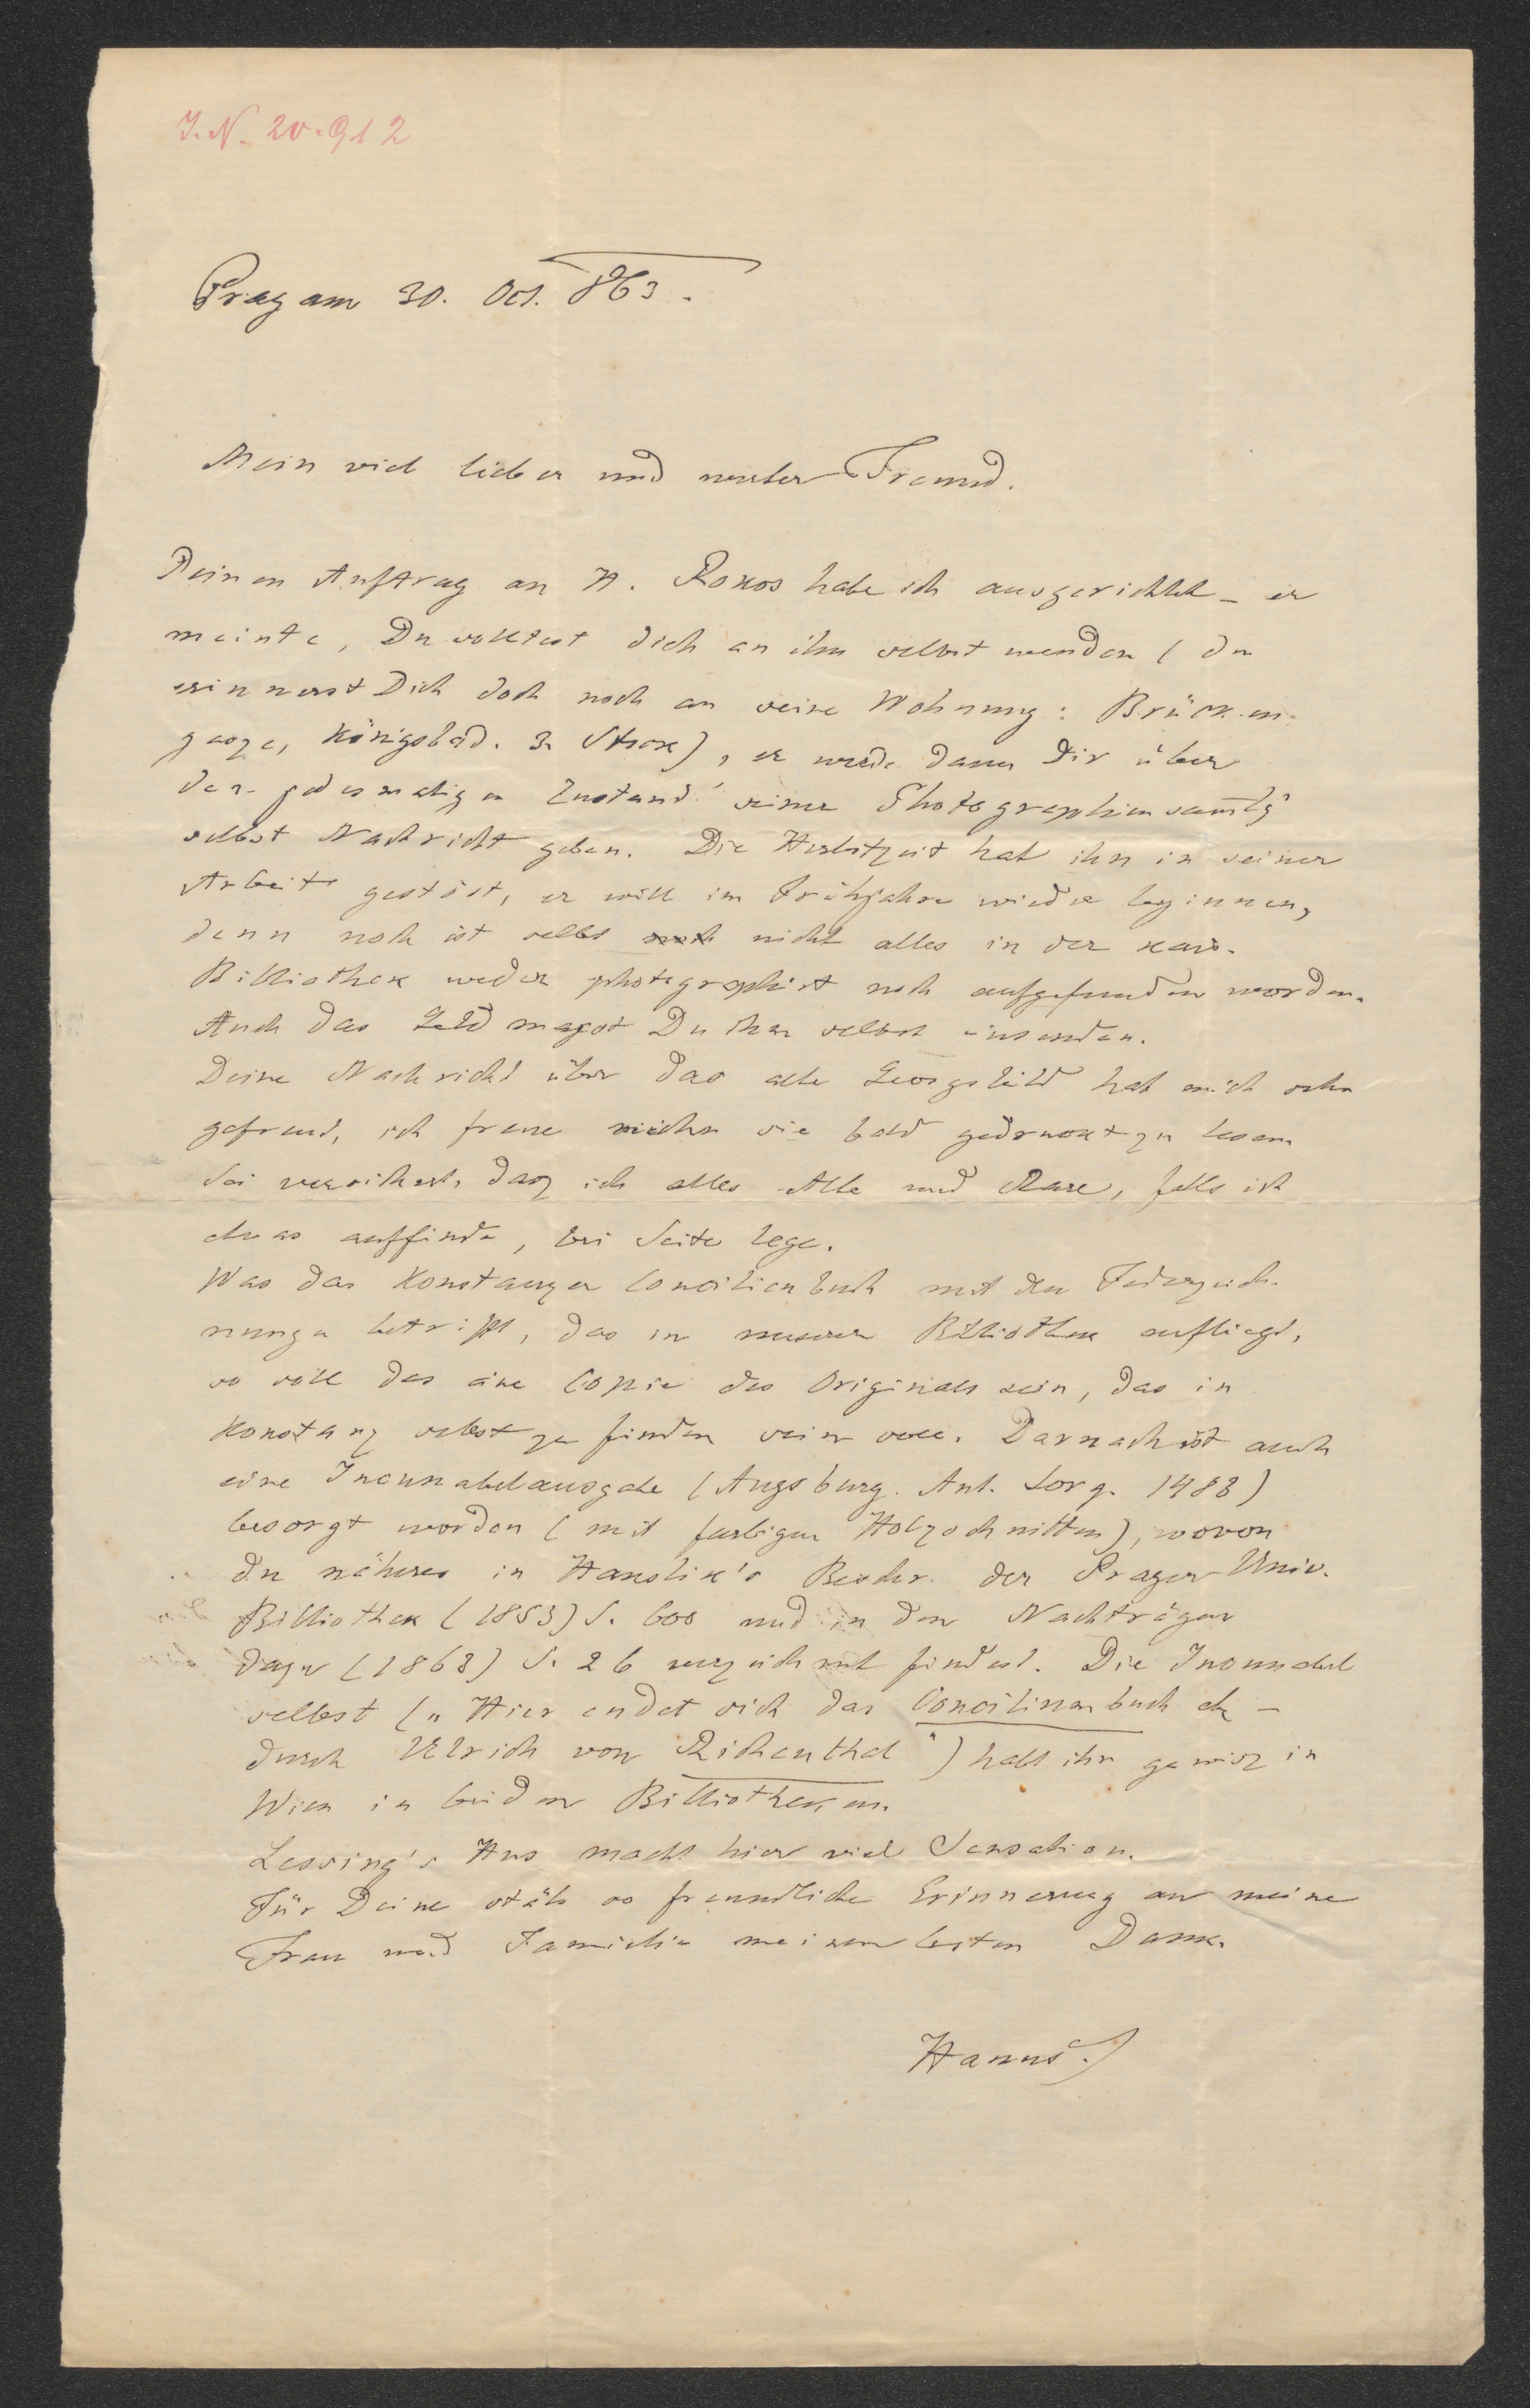 J. N. 20.912
Prag am 30. Oct. 863.
Mein viel lieber und werter Freund.
Deinen Auftrag an H. Rokos habe ich ausgerichtet – er
meinte, Du solltest Dich an ihn selbst wenden (du
erinnerst Dich doch noch an seine Wohnung: Brücken-
gasze, Königsbad. 3. Stock), er werde dann Dir über
den jedesmaligen Zustand seiner Photographiensamlg
selbst Nachricht geben. Die Herbstzeit hat ihn in seiner
Arbeit gestört, er will im Frühjahre wieder beginnen,
denn noch ist selbst nicht alles in der kais.
Bibliothek weder photographirt noch aufgefunden worden.
Auch das Geld magst Du ihm selbst einsenden.
Deine Nachricht über das alte Georgsbild hat mich sehr
gefreud, ich freue mich sie bald gedruckt zu lesen.
Sei versichert, dasz ich alles Alte und Rare, falls ich
etwas auffinde, bei Seite lege.
Was das Konstanzer Concilienbuch mit den Federzeich-
nungen betrifft, das in unserer Bibliothek aufliegt,
so soll das eine Copie des Originals sein, das in
Konstanz selbst zu finden sein soll. Darnach ist auch
eine Incunabelausgabe (Augsburg. Ant. Sorg. 1483)
besorgt worden (mit farbigen Holzschnitten), wovon
Du näheres in Hanslik's Beschr. der Prager Univ.
Bibliothek (1853) S. 600 und in den Nachträgen
dazu (1863) S. 26 verzeichnet findest. Die Incunabel
selbst („Hier endet sich das Conciliumbuch etc –
durch Ulrich von Richenthal") habt ihr gewisz in
Wien in beiden Bibliotheken.
Lessing's Hus macht hier viel Sensation.
Für Deine stäts so freundliche Erinnerung an meine
Frau und Familie meinen besten Dank.
Hanuš.